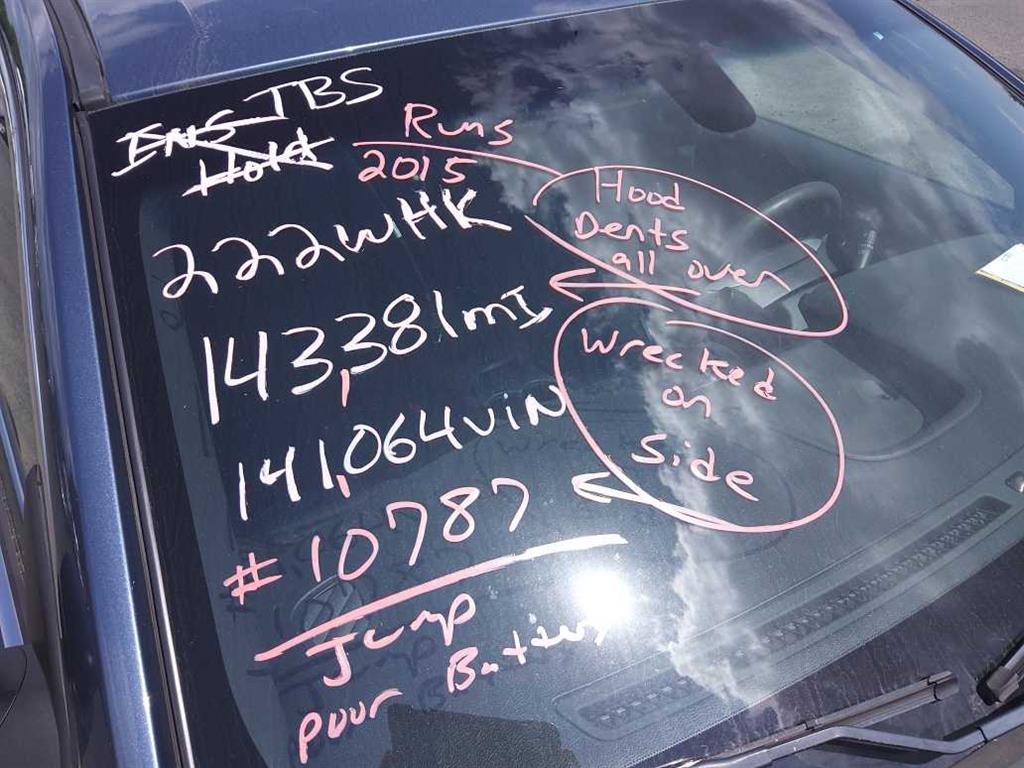 TBS
ENS
Hold
Runs
2015
222WHK
143,381mI
141,064 VIN
#10787
Jump
puur Battery
Hood
Dents
all over
Wrecked
on
Side